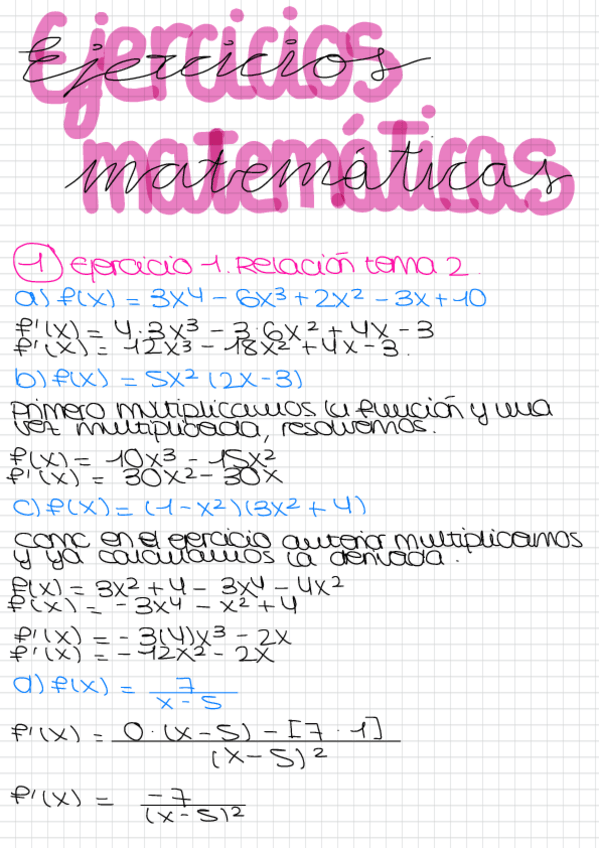 Ejercicios
matemáticas
1 Ejercicio 1. Relación tema 2.
a) f(x) = 3x⁴ - 6x³ + 2x² - 3x + 10
f'(x) = 4·3x³ - 3·6x² + 4x - 3
f'(x) = 12x³ - 18x² + 4x - 3.
b) f(x) = 5x² (2x - 3)
Primero multiplicamos la función y una
vez multiplicada, resolvemos.
f(x) = 10x³ - 15x²
f'(x) = 30x² - 30x
c) f(x) = (1 - x²)(3x² + 4)
como en el ejercicio anterior multiplicamos
y ya calculamos la derivada.
f(x) = 3x² + 4 - 3x⁴ - 4x²
f(x) = -3x⁴ - x² + 4
f'(x) = -3(4)x³ - 2x
f'(x) = -12x² - 2x
d) f(x) = 7 / (x - 5)
f'(x) = 0·(x - 5) - [7·1] / (x - 5)²
f'(x) = -7 / (x - 5)²